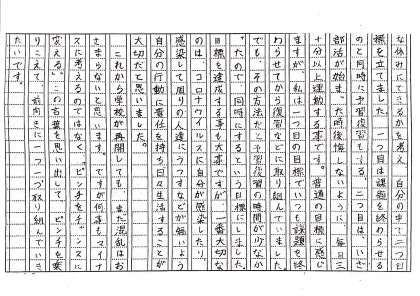 な休みにできるかを考え、自分の中で二つ目
標を立てました。一つ目は課題を終わらせる
のと同時に予習復習もする。二つ目は、いざ
部活が始まった時後悔しないように、毎日三
十分以上運動する事です。普通の目標に感じ
ますが、私は一つ目の目標でいつも課題を終
わらせてから復習などに取り組んでいました。
でも、その方法だと予習復習の時間が少なか
ったので、同時にするという目標にしました。
目標を達成する事も大事ですが、一番大切な
のは、コロナウイルスに自分が感染したり、
感染して周りの人達にうつすなどが無いよう
自分の行動に責任を持ち日々生活することが
大切だと思いました。
これから学校が再開しても、まだ混乱はお
さまらないと思います。ですが何事もマイナ
スに考えるのではなく、"ピンチをチャンスに
変える"。この言葉を思い出して、ピンチを乗
りこえて、前向きに一つ一つ取り組んでいき
たいです。